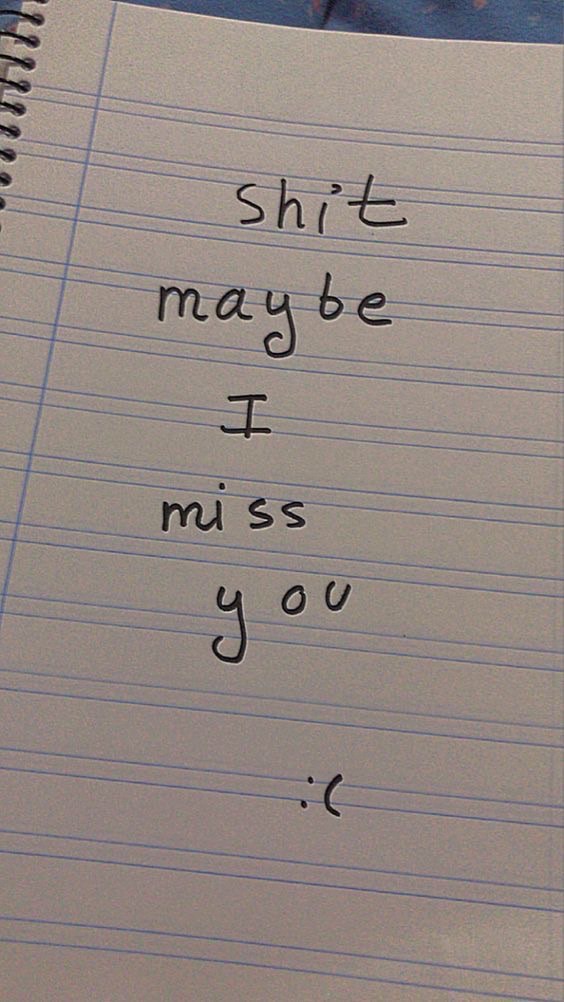 shit
maybe
I
miss
you
:(